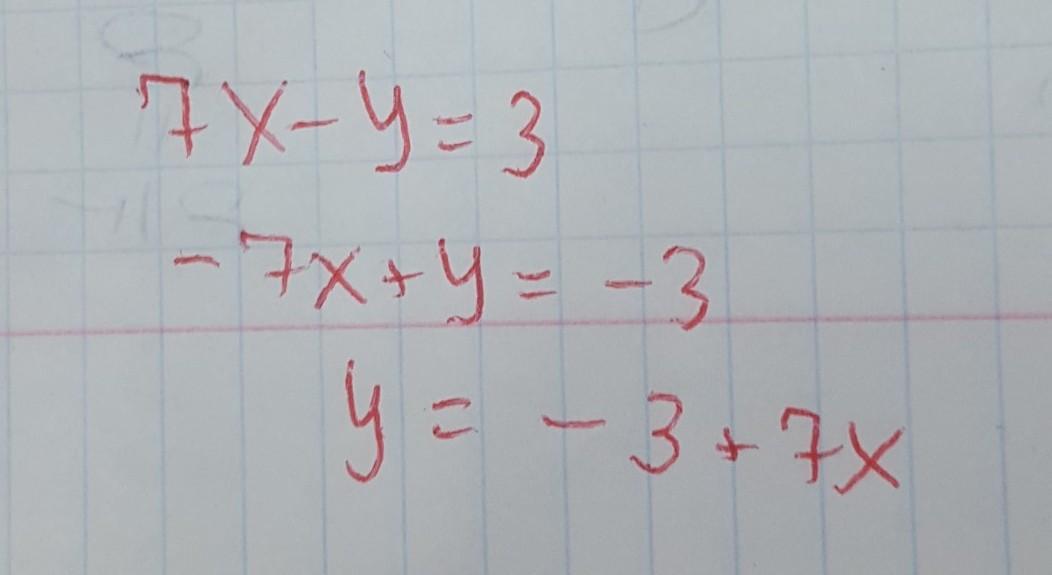 7x-y=3
-7x+y=-3
y=-3+7x